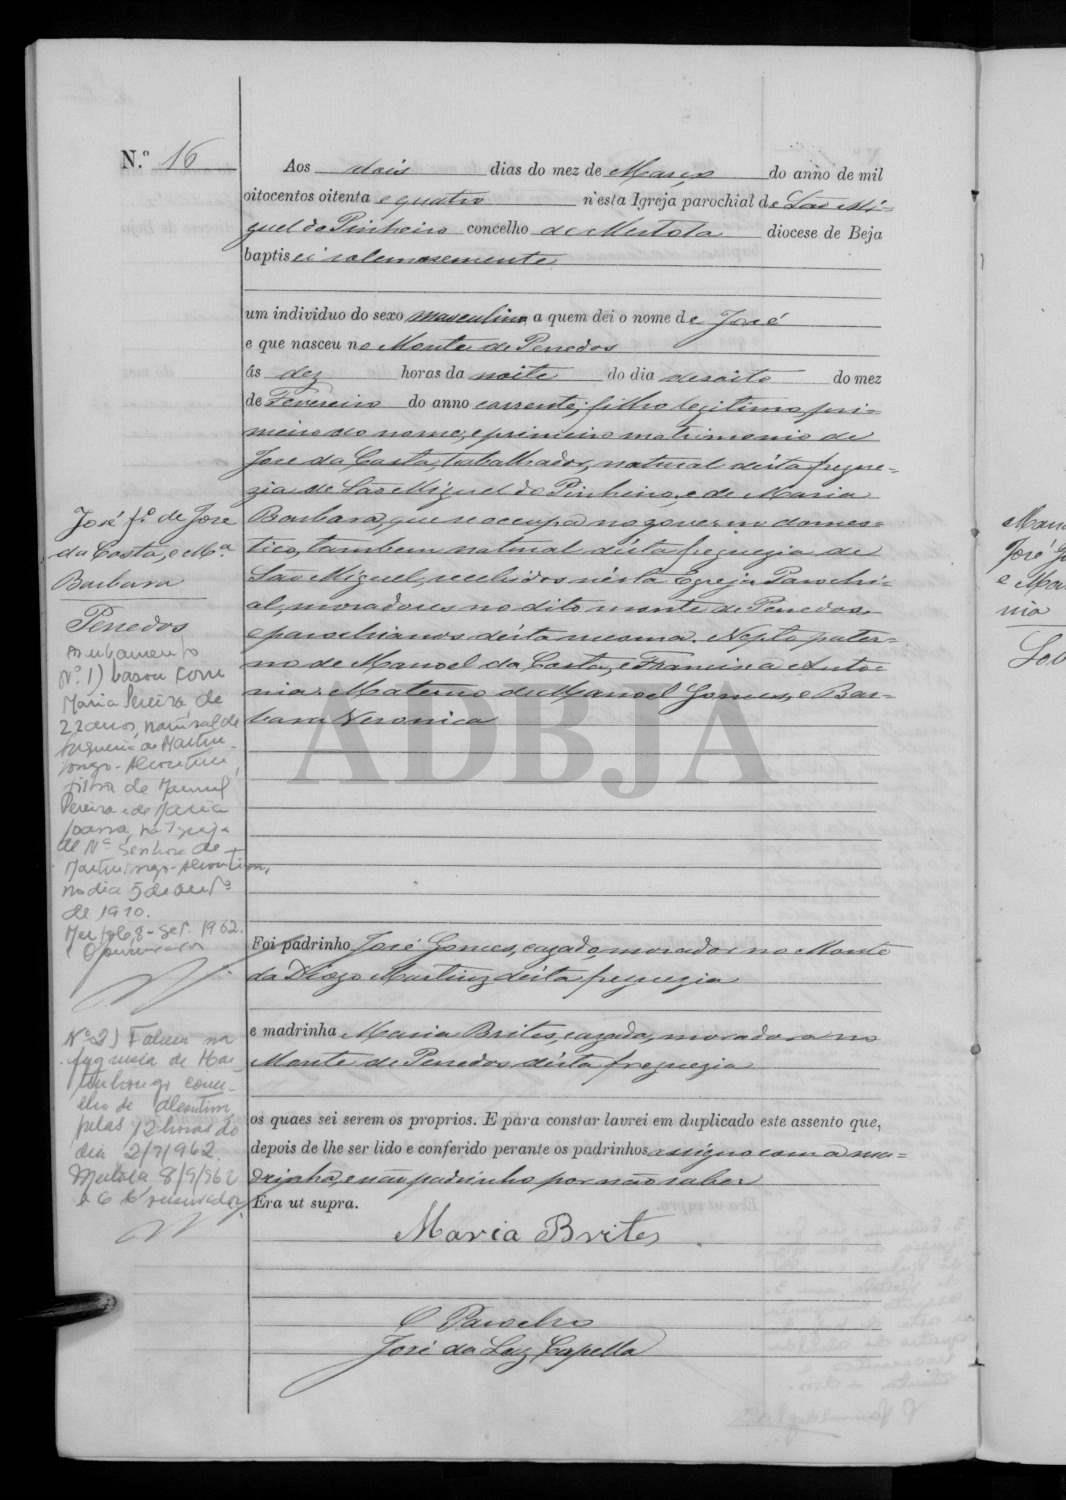 N.º 16
Aos dois dias do mez de Março do anno de mil
oitocentos oitenta e quatro n'esta Igreja parochial de São Mi-
guel do Pinheiro concelho de Mertola diocese de Beja
baptisei solemnemente
um individuo do sexo masculino a quem dei o nome de José
e que nasceu no Monte de Penedos
ás dez horas da noite do dia desoito do mez
de Fevereiro do anno corrente, filho legitimo, pri-
meiro do nome, e primeiro matrimonio de
Jose da Costa, trabalhador, natural désta fregue-
zia de São Miguel do Pinheiro, e de Maria
Barbara, que se occupa no governo domes-
tico, tambem natural désta freguezia de
São Miguel, recebidos nésta Egreja Parochi-
al, moradores no dito monte de Penedos
e parochianos désta mesma. Nepto pater-
no de Manoel da Costa, e Francisca Anto-
nia: Materno de Manoel Gomes, e Bar-
bara Veronica
Foi padrinho José Gomes, cazado, morador no Monte
da Diogo Martinz désta freguezia
e madrinha Maria Brites, cazada, moradora no
Monte de Penedos désta freguezia
os quaes sei serem os proprios. E para constar lavrei em duplicado este assento que,
depois de lhe ser lido e conferido perante os padrinhos assigno com a ma-
drinha, e não padrinho por não saber
Era ut supra.
Maria Brites
O Parocho
José da Luz Capella
José f.º de Jose
da Costa, e M.ª
Barbara
Penedos
Averbamento
Nº 1) Casou com
Maria Pereira de
22 anos, natural de
freguesia de Martin
longo - Alcoutim,
filha de Manuel
Pereira e de Maria
Joana, na Igreja
de Nª Senhora de
Martinlongo - Alcoutim,
no dia 5 de
de 1910.
8 - Set. 1962.
O conservador
Nº 2) Faleceu na
freguesia de Mar-
tinlongo conce-
lho de Alcoutim
pelas 12 horas do
dia 2/7/962.
Mertola, 8/9/962
O Conservador
ADBJA